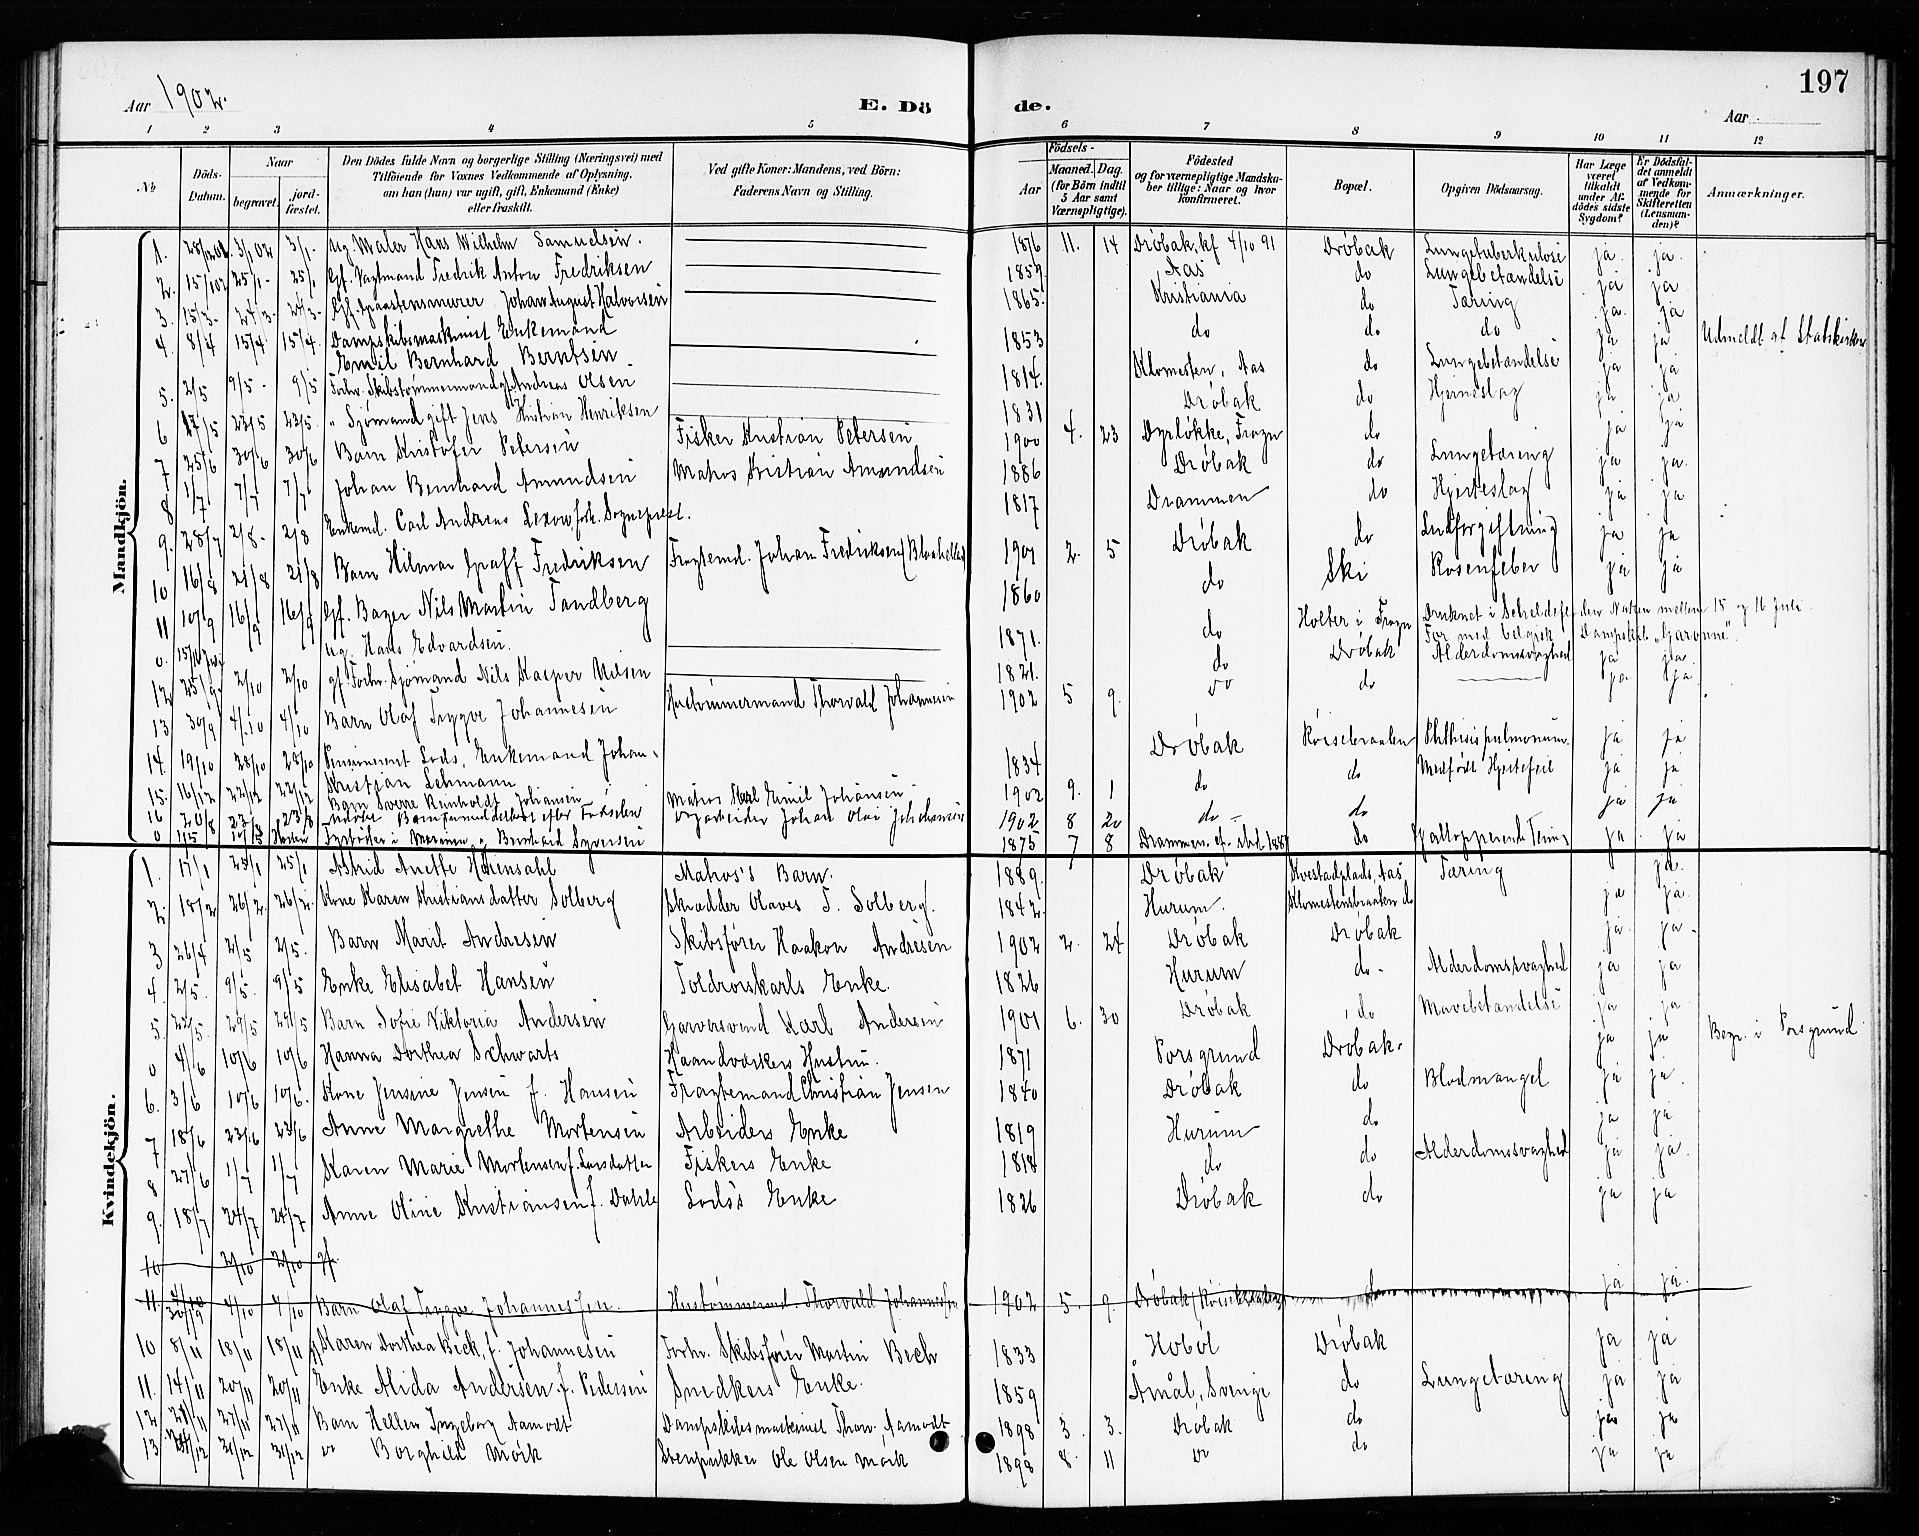 197
Aar 1902. E. Dö de. Aar
1 2 3 4 5 6 7 8 9 10 11 12
No Döds-Datum. Naar begravet. jord-fæstet. Den Dödes fulde Navn og borgerlige Stilling (Næringsvei) med Tilföiende for Voxnes Vedkommende af Oplysning, om han (hun) var ugift, gift, Enkemand (Enke) eller fraskilt. Ved gifte Koner: Mandens, ved Börn: Faderens Navn og Stilling. Födsels- Aar Maaned. Dag. (for Börn indtil 5 Aar samt Værnepligtige). Födested og for værnepligtige Mandskaber tillige: Naar og hvor konfirmeret. Bopæl. Opgiven Dödsaarsag. Har Læge været tilkaldt under Afdödes sidste Sygdom? Er Dödsfaldet anmeldt af Vedkommende for Skifteretten (Lensmanden)? Anmærkninger.
Mandkjön.
1. 3/1 02 3/1- ug. Maler Hans Wilhelm Samuelsen. 1876 11. 14 Dröbak, kf 4/10 91 Dröbak Lungetuberkulose ja. ja.
2. 15/1 02 25/1- 25/1 Gf. Vagtmand Fredrik Anton Fredriksen 1859. Aas do Lungebetændelse ja ja
3. 15/3- 24/3- 24/3- Gf. Graastensmurer Johan August Halvorsen 1865. Kristiania do Tæring ja. ja
4. 8/4 15/4. 15/4. Dampskibsmaskinist Enkemand 1853 do do do ja ja Udmeldt af Statskirken
Emil Bernhard Berntsen
5. 2/5 9/5- 9/5 Forhv. Skibstømmermand gf. Andreas Olsen 1814. Klomesten, Aas do Lungebetændelse ja ja
6 17/5 23/5 23/5. " Sjømand gift Jens Kristian Henriksen 1831 Dröbak do Hjerneslag ja ja
7 25/6 30/6 30/6 Barn Kristofer Petersen Fisker Kristian Petersen 1900 4. 23 Dyrløkke, Frogn do ja ja
8 1/7 7/7 7/7 Johan Bernhard Amundsen Matros Kristian Amundsen 1886 Dröbak do Lungetæring ja ja.
9. 28/7 2/8- 2/8 Enkemd. Carl Andreas Lexow, forh. Sogneprest. 1817 Drammen do Hjerteslag ja ja
10 16/8 21/8 21/8 Barn Hilmar Graff Fredriksen Fragtemd. Johan Fredriksen 1901 2. 5 Dröbak do ja ja
11 10/9 16/9 16/9 Gf. Bager Nils Martin Tandberg 1860 do Ski Rosenfeber ja ja
0. ug. Hans Edvardsen. 1871. do Holter i Frogn Druknet i Scheldefl. den Natten mellem 15 og 16 Juli
For med belgisk Dampskib "Garonne".
12 25/9 2/10 2/10 gf. Forhv. Sjømand Nils Kasper Nilsen 1821. do Dröbak Alderdomssvaghed ja ja.
13 30/9 4/10 4/10 Barn Olaf Trygve Johannesen Hustömmermand Thorvald Johannesen 1902 5 9. do do ja ja.
14. 19/10 28/10 28/10 Pensioneret Lods, Enkemand Johan 1834 Dröbak Phthisis pulmonum. ja ja
Kristian Lehmann
15. 16/12 22/12 22/12 Barn Sverre Reinholdt Johansen Matros Karl Emil Johansen 1902 9. 1 do do Medfödt Hjertefeil ja ja
16 20/8 23/8 23/8 efter Fødselen Johan Olai Johansen 1902 8 20 do- do ja ja
0 Fyrbøder i Marinen, Bernhard Syversen 1875 7 8 Drammen do Gallopperende Tæring ja. ja
Kvindekjön.
1. 17/1 25/1 25/1 Astrid Anette Matros's Barn. 1889. Dröbak Kvestadplads, Aas. Tæring ja.
2. 18/2 26/2. 26/2. Kone Karen Kristiansdatter Solberg Skrædder Olaves T. Solberg. 1842. Hurum. Klomestensbraaten do ja ja.
3 26/4 2/5 2/5. Barn Marit Andresen Skibsfører Haakon Andresen 1902 2. 24 Dröbak Dröbak ja ja.
4. 2/5. 9/5. 9/5 Enke Elisabet Hansen Toldrorskarls Enke. 1826 Hurum do- Alderdomssvaghed ja ja
5. 22/5. 29/5 29/5 Barn Sofie Viktoria Andersen Garversvend Karl Andersen 1901 6. 30 Dröbak do Mavebetændelse ja ja
0 4/6 10/6 10/6 Hanna Dorthea Schwarts Haandværkers Hustru. 1871 Porsgrund Dröbak. ja ja Begr. i Porsgrund.
6. 3/6 10/6 10/6. Kone Jensine Jensen f. Hansen Fragtemand Christian Jensen 1840 Dröbak do Blodmangel ja ja.
7 18/6 23/6 23/6 Anne Margrethe Mortensen Arbeiders Enke 1819 Hurum do ja ja
8 27/6 1/7 1/7 Karen Marie Mortensen f. Larsdatter Fiskers Enke 1818 do do Alderdomssvaghed ja ja.
9. 18/7 24/7 24/7 Anne Oline Kristiansen f. Dahle Lods's Enke 1826 Dröbak do ja ja
10 2/10 2/10 gf.
11 30/9 4/10 4/10 Barn Olaf Trygve Johannessen. Hustømmermd. Thorvald Johannessen 1902 5. 9. Dröbak do ja ja.
10 8/11 18/11 18/11 Karen Dorthea Beck, f. Johannesen Forhv. Skibsfører Martin Bech 1833 Hobøl Dröbak ja ja
11. 14/11 20/11 20/11 Enke Alida Andersen f. Pedersen Snedkers Enke. 1859 Åmål, Sverige do Lungetæring ja ja
12. 21/11 27/11 27/11 Barn Hellen Ingeborg Aamodt Dampskibsmaskinist Thorv. Aamodt 1898 3 3. Dröbak do ja ja
13 31/12 31/12 do Borghild Mørk Stenpukker Ole Olsen Mørk 1898 8. 11 do do ja ja